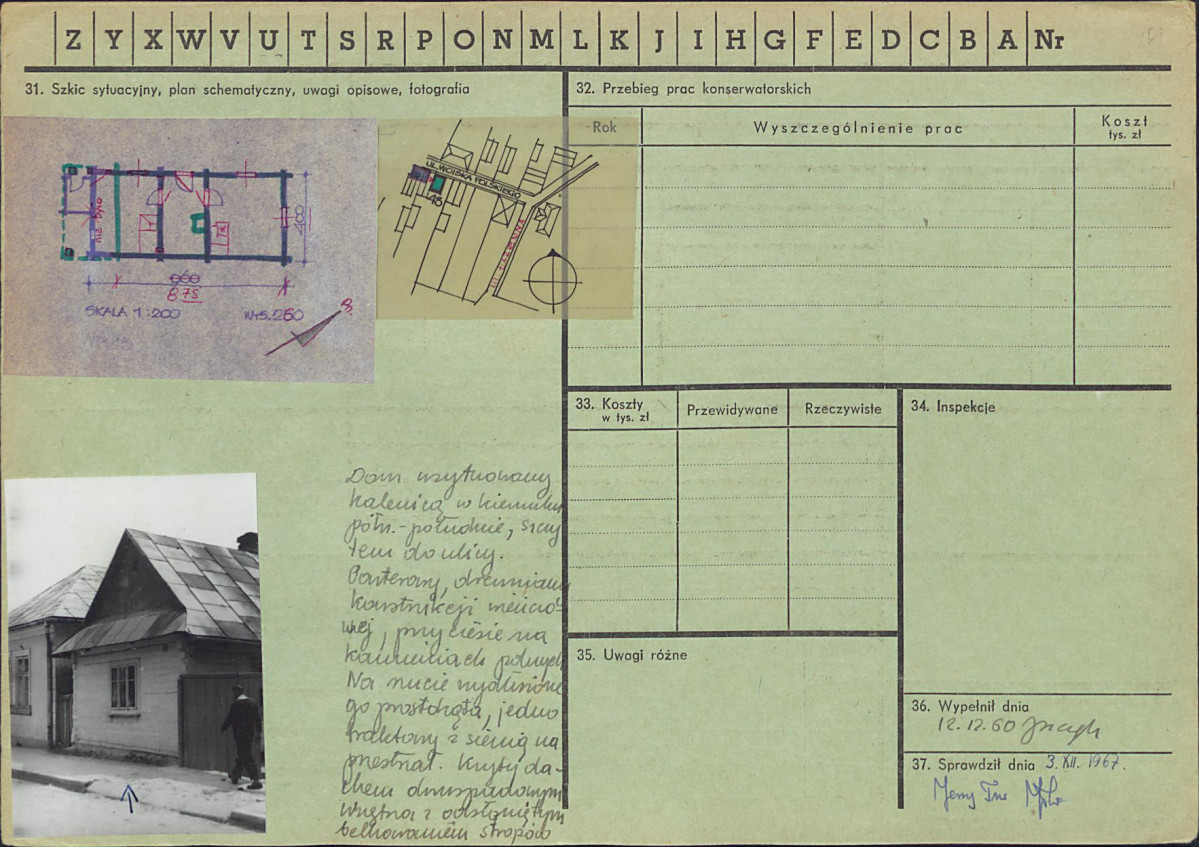 Z Y X W V U T S R P O N M L K J I H G F E D C B A Nr
31. Szkic sytuacyjny, plan schematyczny, uwagi opisowe, fotografia
nie było
400
600
875
SKALA 1:200
WYS. 260
UL. WOJSKA POLSKIEGO
43
Dom usytuowany
kalenicą w kierunku
półn.-południe, szczy
tem do ulicy.
Parterowy, drewniany
konstrukcji wieńco-
wej, przyciesie na
kamieniach polnych
Na rzucie wydłużone
go prostokąta, jedno
traktowy z sienią na
przestrzał. Kryty da-
chem dwuspadowym
Wnętrza z odsłoniętym
belkowaniem stropów
32. Przebieg prac konserwatorskich
Rok
Wyszczególnienie prac
Koszt
tys. zł
33. Koszty
w tys. zł
Przewidywane
Rzeczywiste
34. Inspekcje
35. Uwagi różne
36. Wypełnił dnia
12.12.60
37. Sprawdził dnia 3.XII.1967.
Jerzy